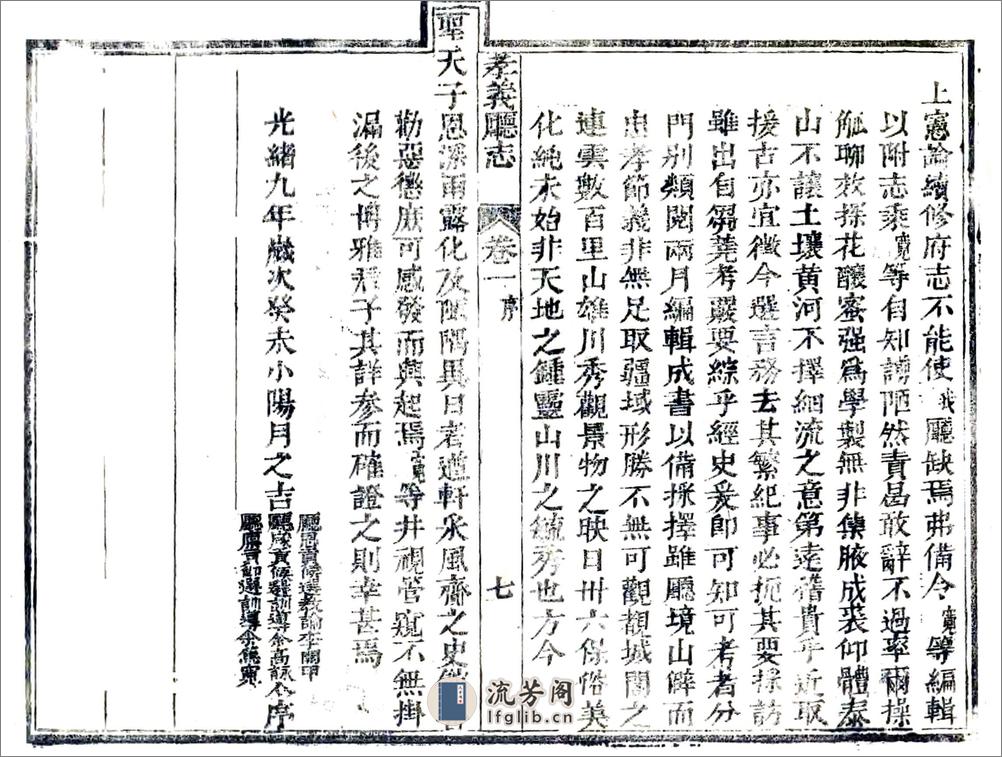 上憲諭續修府志不能使我廳缺焉弗備令寬等編輯
以附志乘寬等自知譾陋然責曷敢辭不過率爾操
觚聊效採花釀蜜强為學製無非集腋成裘仰體泰
山不讓土壤黄河不擇細流之意第遠稽貴乎近取
援古亦宜徵今選言務去其繁紀事必扼其要採訪
雖出自芻蕘考嚴要綜乎經史爰即可知可考者分
門别類閲兩月編輯成書以備採擇雖廳境山僻而
忠孝節義非無足取疆域形勝不無可觀觀城閭之
連雲數百里山雄川秀觀景物之映日卅六保俗美
化純未始非天地之鍾靈山川之毓秀也方今
孝義廳志 卷一 序 七
聖天子恩深雨露化及陬隅異日者遒軒采風齋之史館
勸惡懲庶可感發而興起焉寬等井視管窺不無掛
漏後之博雅君子其詳參而確證之則幸甚焉
光緒九年歲次癸未小陽月之吉
廳恩貢候選教諭李開甲
廳歲貢候選訓導余高詠仝序
廳廩貢即選訓導余集寬
流芳阁
lfglib.cn